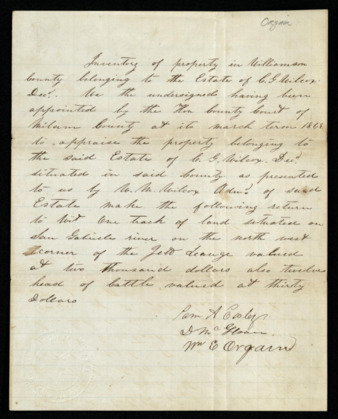 Orgain
Inventory of property in Williamson
County belonging to the Estate of C. G. Wilcox
Decd. We the undersigned having been
appointed by the Hon County Court of
Milam County at its march term
to appraise the property belonging to
the said Estate of C. G. Wilcox Decd
situated in said County as presented
to us by Wilcox Admr. of said
Estate make the following return
to Wit One track of land situated on
San Gabriel river on the north west
corner of the League valued
at two thousand dollars also twelve
head of Cattle valued at thirty
Dollars
Sam A
D Mc
Wm E Orgain